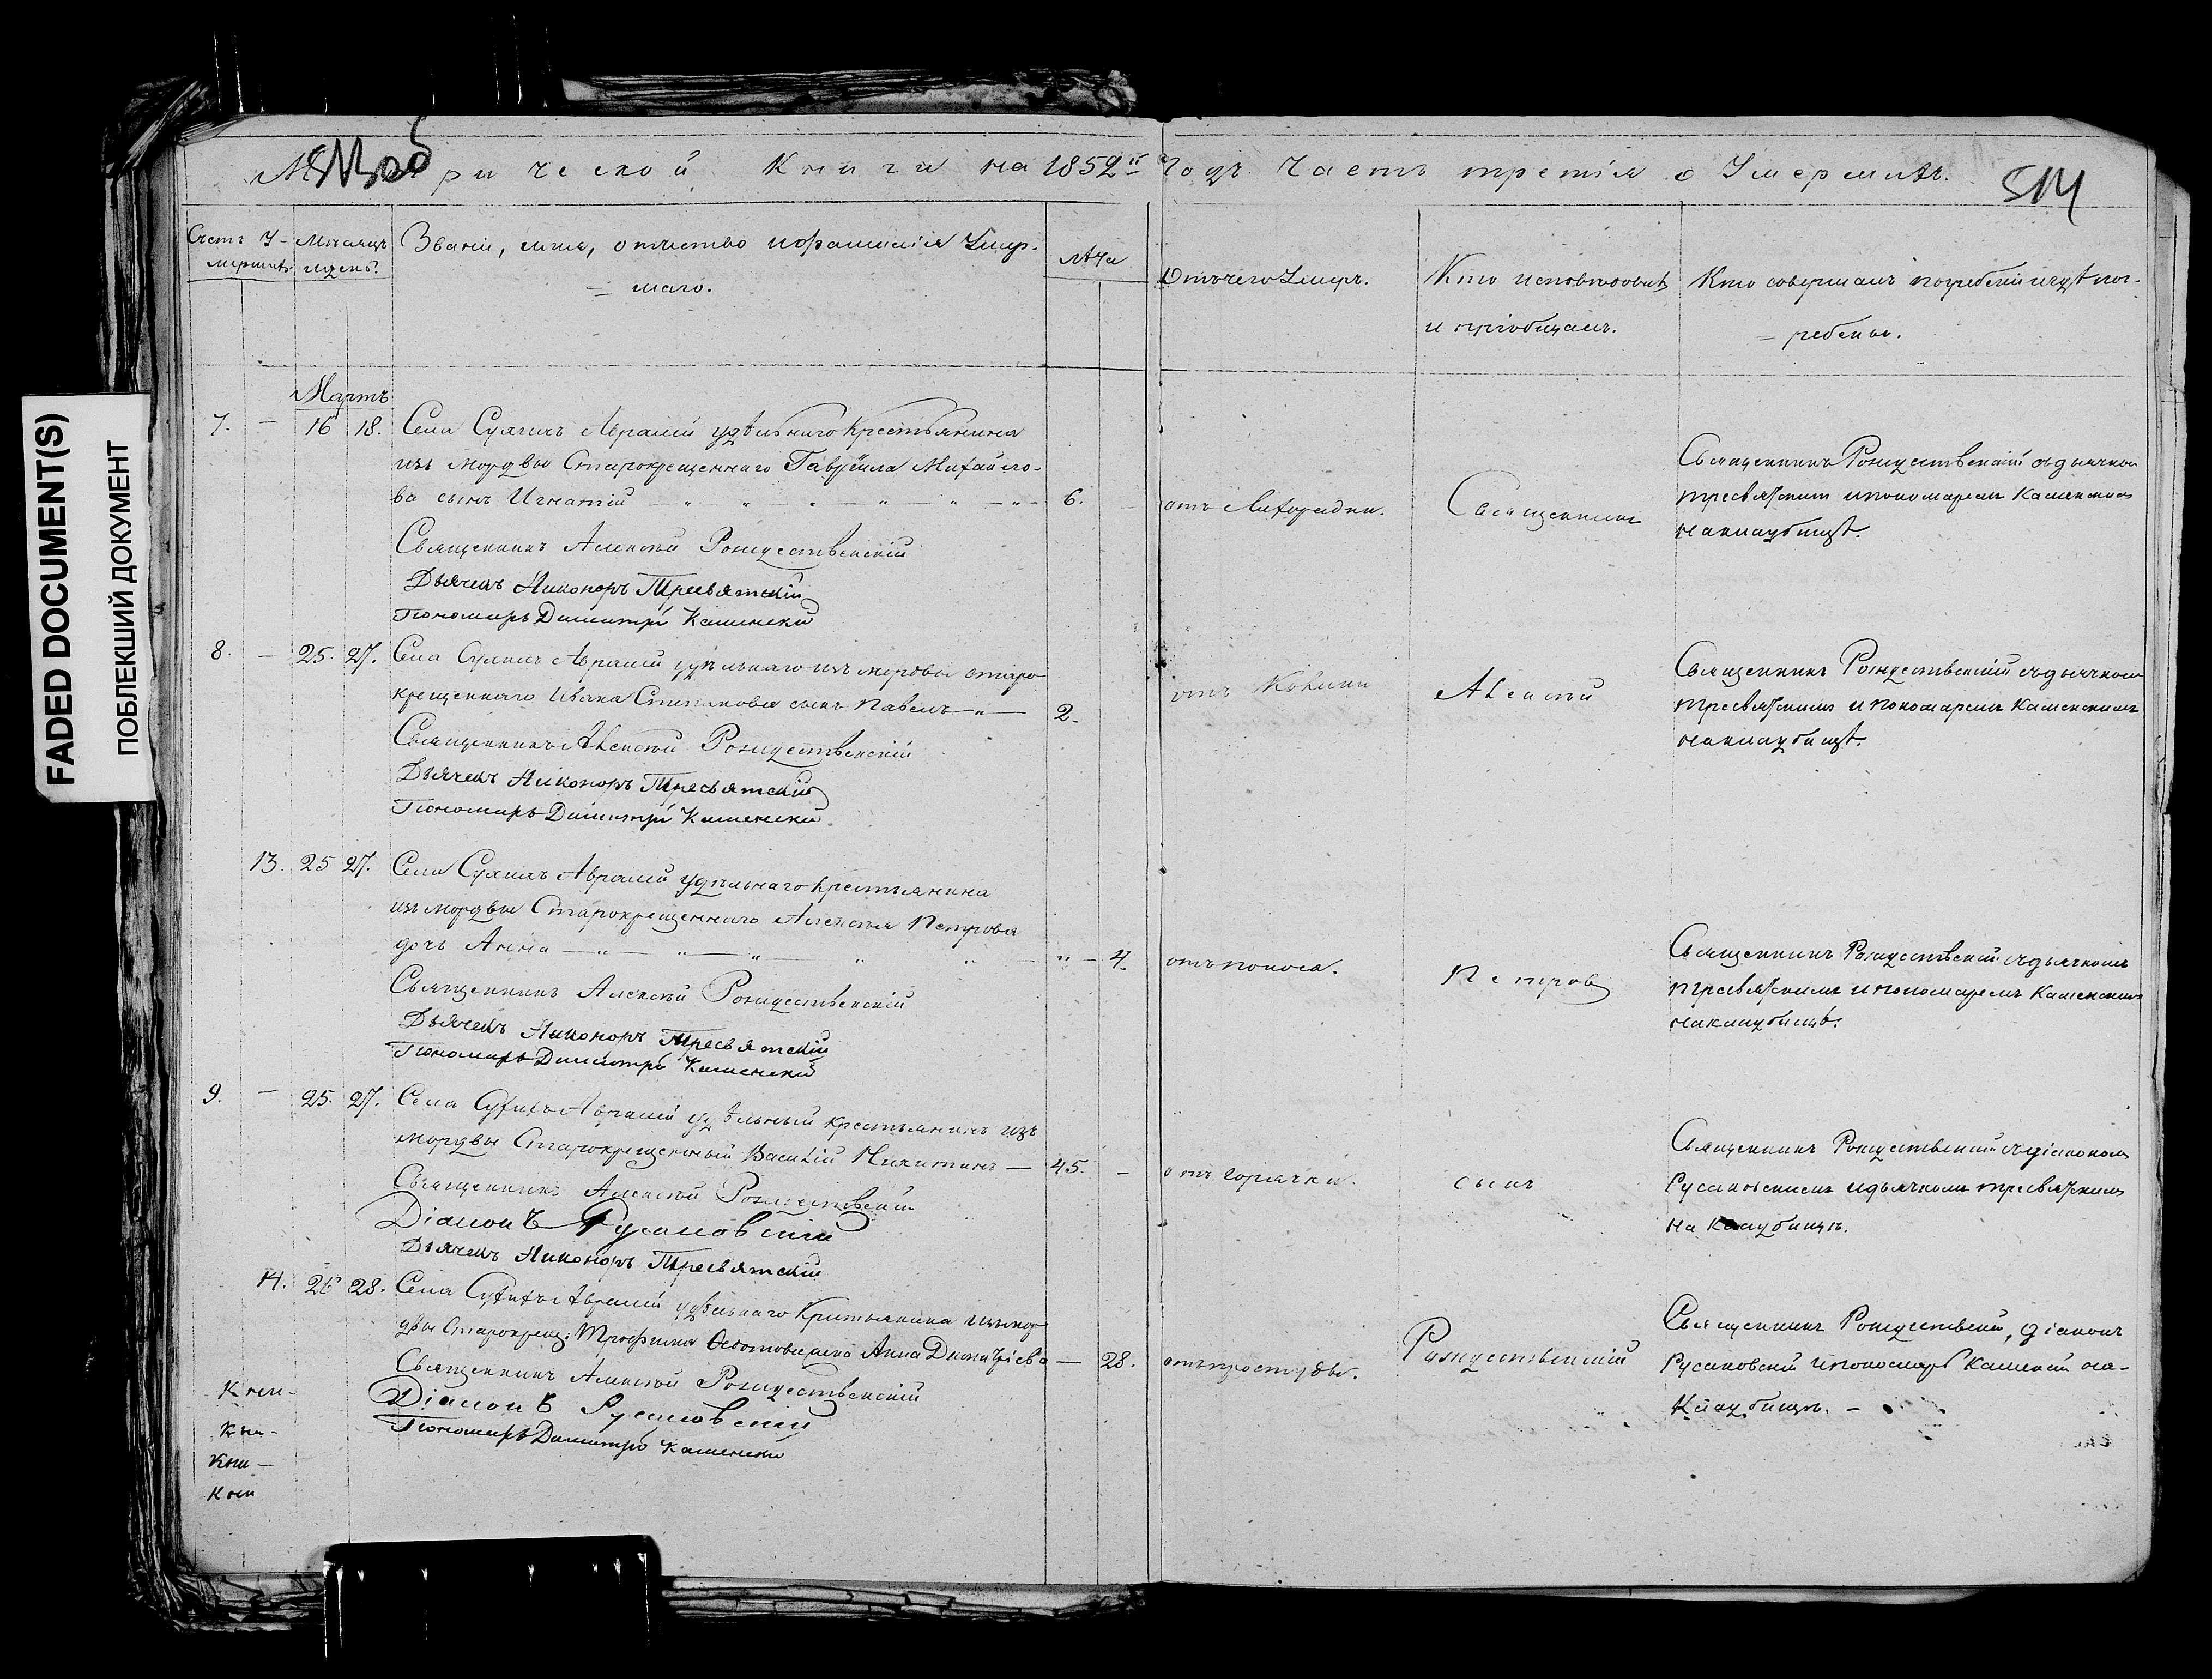 FADED DOCUMENT(S)
ПОБЛЕКШИЙ ДОКУМЕНТ
Метрической Книги на 1852й Годъ Часть третія о Умершихъ.
514
Счетъ У-
мершихъ
Мѣсяцъ
и день.
Званіе, имя, отчество и фамилія Умер-
= шаго.
лѣта
Отъ чего Умеръ.
Кто исповѣдовалъ
и пріобщалъ.
Кто совершалъ погребеніе и гдѣ пог-
= ребены.
Мартъ
7. — 16 18. Села Авралей удѣльнаго Крестьянина
изъ мордвы Старокрещеннаго Гавріила Михайло-
ва сынъ Игнатій 6.
отъ Лихорадки.
Священникъ
Священникъ Рождественскій съ дьячкомъ
Тресвятскимъ и пономаремъ Каменскимъ
на кладбищѣ.
Священникъ Алексѣй Рождественскій
Дьячекъ Никоноръ Тресвятскій
Пономарь Димитрій Каменскій
8. — 25. 27. Села Авралей удѣльнаго изъ мордвы старо-
крещеннаго Ивана Степанова сынъ Павелъ 2.
отъ
Алексѣй
Священникъ Рождественскій съ дьячкомъ
Тресвятскимъ и пономаремъ Каменскимъ
на кладбищѣ.
Священникъ Алексѣй Рождественскій
Дьячекъ Никоноръ Тресвятскій
Пономарь Димитрій Каменскій
13. 25 27. Села Авралей удѣльнаго крестьянина
изъ мордвы Старокрещеннаго Алексѣя Петрова
дочь Анна 4.
отъ поноса.
Петровъ
Священникъ Рождественскій съ дьячкомъ
Тресвятскимъ и пономаремъ Каменскимъ
на кладбищѣ.
Священникъ Алексѣй Рождественскій
Дьячекъ Никоноръ Тресвятскій
Пономарь Димитрій Каменскій
9. — 25. 27. Села Авралей удѣльный крестьянинъ изъ
мордвы Старокрещенный Василій Никитинъ — 45. —
отъ горячки.
сынъ
Священникъ Рождественскій съ діакономъ
Русановскимъ и дьячкомъ Тресвятскимъ
на кладбищѣ.
Священникъ Алексѣй Рождественскій
Діаконъ Русановскій
Дьячекъ Никоноръ Тресвятскій
14. 26 28. Села Авралей удѣльнаго Крестьянина изъ мор-
двы Старокрещ: Трофима жена Анна Димитріева — 28.
отъ простуды.
Рождественскій
Священникъ Рождественскій, діаконъ
Русановскій и пономарь Каменскій на-
Кладбищѣ. —
Священникъ Алексѣй Рождественскій
Діаконъ Русановскій
Пономарь Димитрій Каменскій